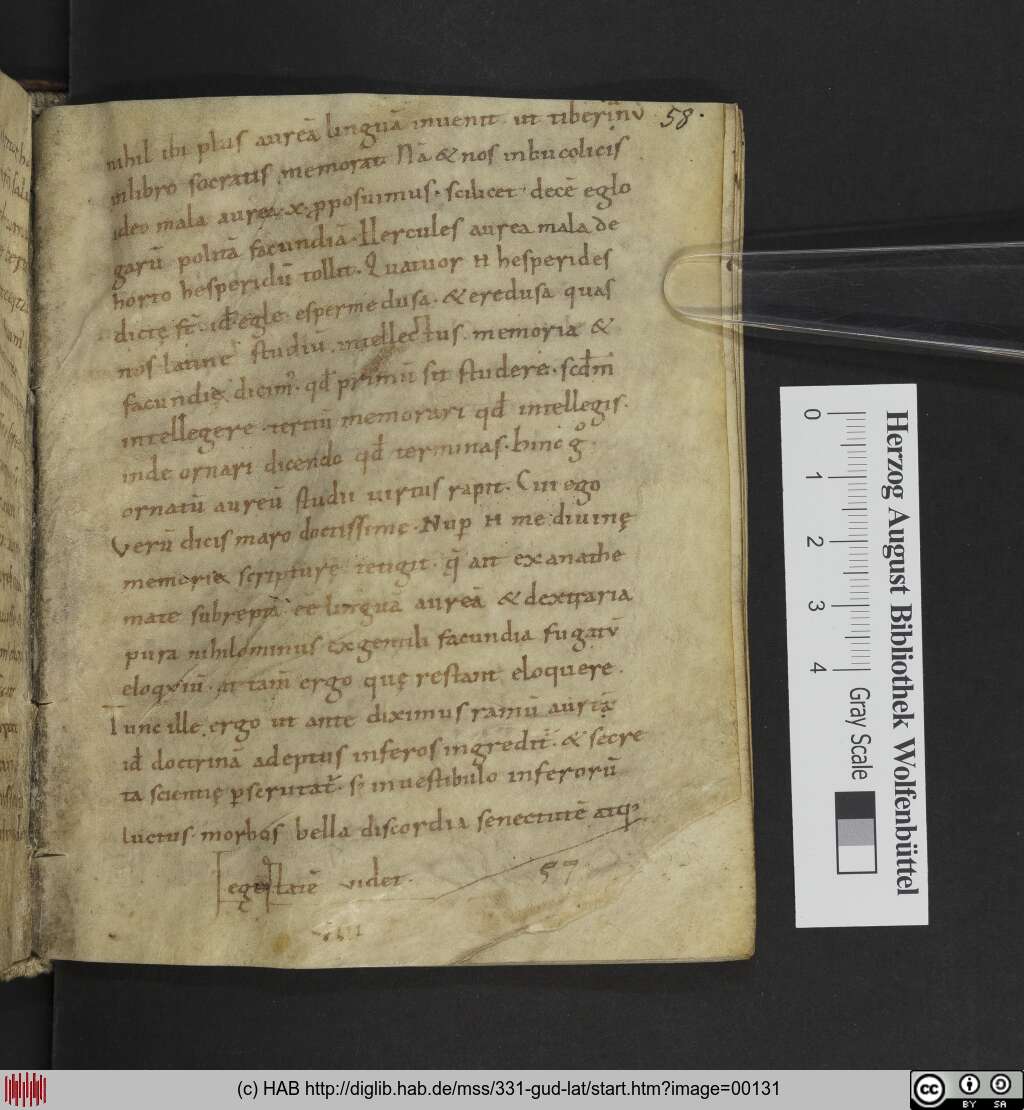 nihil ibi plus aureā linguā inuenit. ut tiberinū
inlibro socratis memorat. Nā & nos inbucolicis
ideo mala aurea .x. pposuimus. scilicet decē eglo
garū polita facundiā. Hercules aurea mala de
horto hesperidū tollit. Quatuor H hesperides
dictę st. id egle. espermedusa. & eredusa quas
nos latine studiū. intellectus. memoria &
facundię dicim'. qđ primū sit studere. scđm
intellegere. tertiū memorari qđ intellegis.
inde ornari dicendo qđ terminas. hinc g°
ornatū aureū studii uirtus rapit. Cui ego
Verū dicis maro doctissimę. Nup H me diuinę
memorie scripturę tetigit. q̄ ait ex anathe
mate subreptā ee linguā aureā & dextraria
pura nihilominus ex gentili facundia fugatū
eloqxiū. at tam̄ ergo quę restant eloquere.
Tunc ille ergo ut ante diximus ramū aureū
id doctrinā adeptus inferos ingredit̄. & secre
ta scientię pscrutat̄. s; inuestibulo inferorū
luctus. morbos bella discordia senectutē atq;
egestatē videt.
58.
57
VIII
0
1
2
3
4
Gray Scale
Herzog August Bibliothek Wolfenbüttel
(c) HAB http://diglib.hab.de/mss/331-gud-lat/start.htm?image=00131
cc BY SA